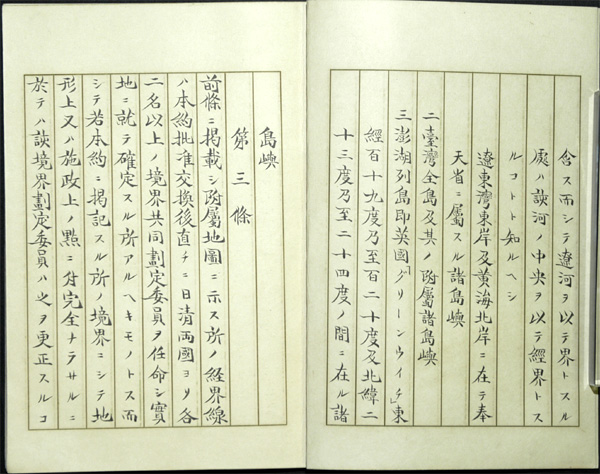 含ス而シテ遼河ヲ以テ界トスル
處ハ該河ノ中央ヲ以テ經界トス
ルコトト知ルヘシ
遼東灣東岸及黃海北岸ニ在テ奉
天省ニ屬スル諸島嶼
二臺灣全島及其ノ附屬諸島嶼
三澎湖列島即英國「グリーンウィチ」東
經百十九度乃至百二十度及北緯二
十三度乃至二十四度ノ間ニ在ル諸
島嶼
第三條
前條ニ掲載シ附屬地圖ニ示ス所ノ經界線
ハ本約批准交換後直チニ日清両國ヨリ各
二名以上ノ境界共同劃定委員ヲ任命シ實
地ニ就テ確定スル所アルヘキモノトス而
シテ若本約ニ掲記スル所ノ境界ニシテ地
形上又ハ施政上ノ點ニ付完全ナラサルニ
於テハ該境界劃定委員ハ之ヲ更正スルコ